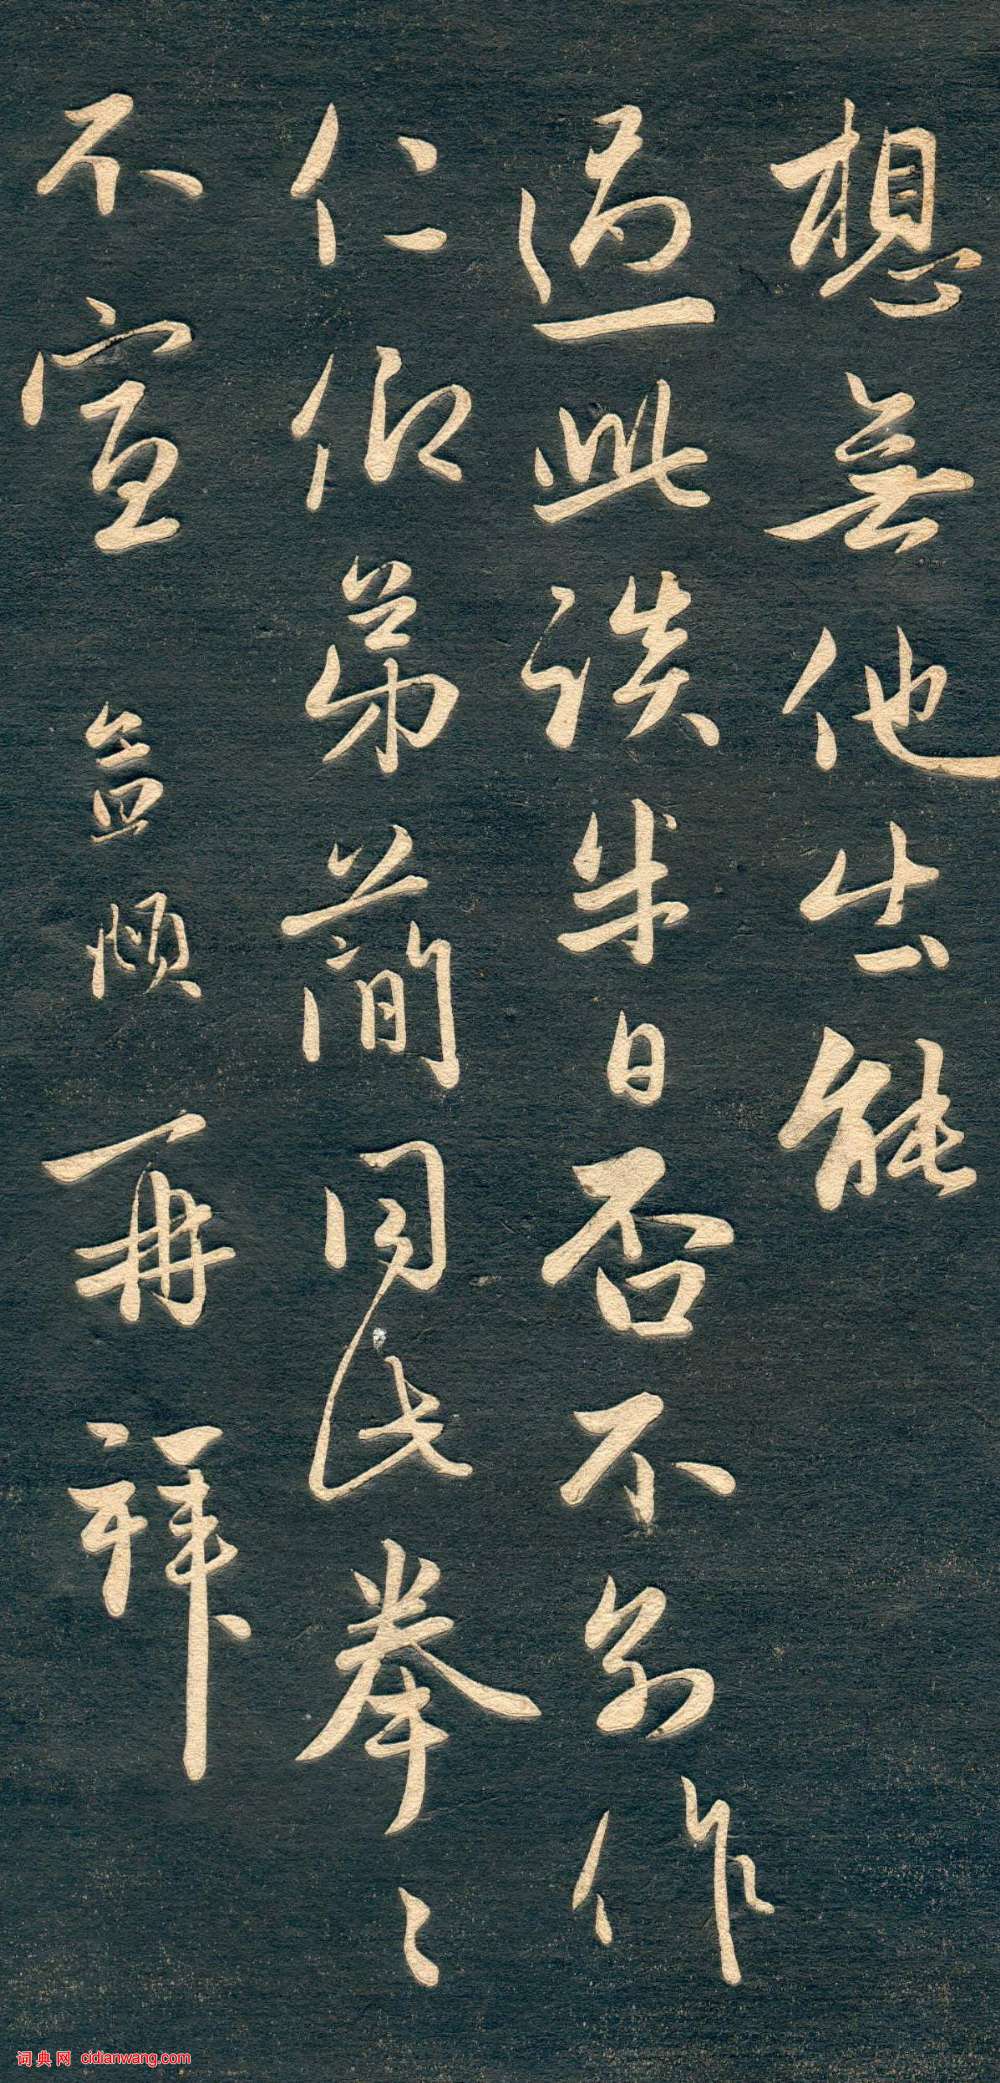 想無他出能
過此談半日否不别作
仁仰弟簡同此拳〻
不宣 孟頫再拜
词典网 cidianwang.com